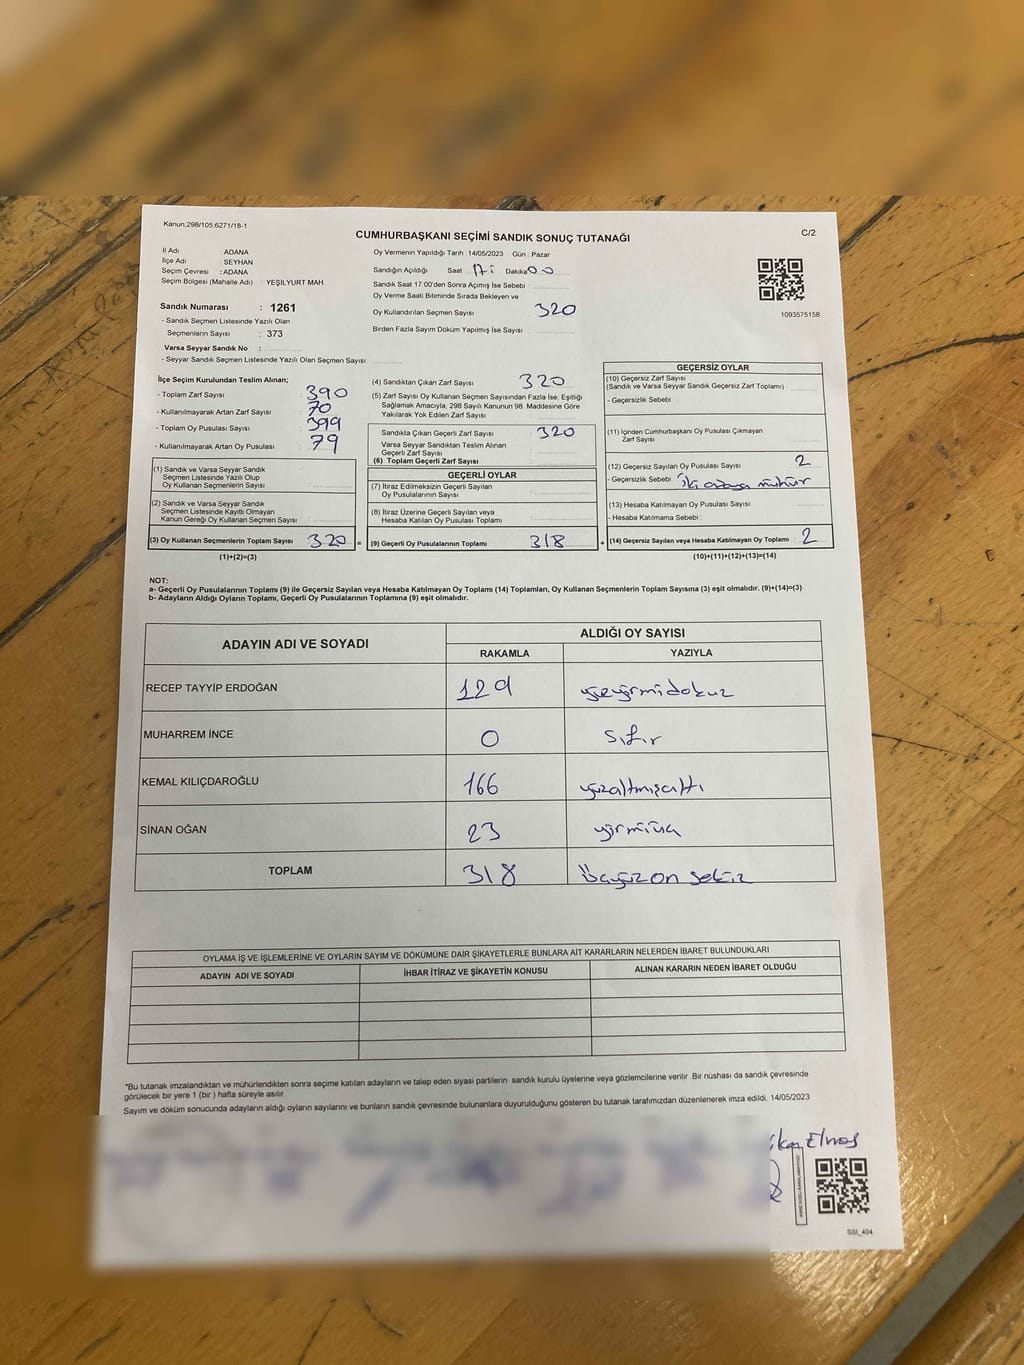 Kanun:298/105,6271/18-1
CUMHURBAŞKANI SEÇİMİ SANDIK SONUÇ TUTANAĞI
C/2
İl Adı : ADANA
İlçe Adı : SEYHAN
Seçim Çevresi : ADANA
Seçim Bölgesi (Mahalle Adı) : YEŞİLYURT MAH
Oy Vermenin Yapıldığı Tarih :14/05/2023 Gün : Pazar
Sandığın Açıldığı Saat 17: Dakika 00
Sandık Saat 17:00'den Sonra Açımış İse Sebebi
Oy Verme Saati Bitiminde Sırada Bekleyen ve
Oy Kullandırılan Seçmen Sayısı 320
Birden Fazla Sayım Döküm Yapılmış İse Sayısı :
1093575158
Sandık Numarası : 1261
- Sandık Seçmen Listesinde Yazılı Olan
Seçmenlerin Sayısı : 373
Varsa Seyyar Sandık No :
- Seyyar Sandık Seçmen Listesinde Yazılı Olan Seçmen Sayısı
İlçe Seçim Kurulundan Teslim Alınan;
- Toplam Zarf Sayısı : 390
- Kullanılmayarak Artan Zarf Sayısı : 70
- Toplam Oy Pusulası Sayısı : 399
- Kullanılmayarak Artan Oy Pusulası : 79
(1) Sandık ve Varsa Seyyar Sandık
Seçmen Listesinde Yazılı Olup
Oy Kullanan Seçmenlerin Sayısı
(2) Sandık ve Varsa Seyyar Sandık
Seçmen Listesinde Kayıtlı Olmayan
Kanun Gereği Oy Kullanan Seçmen Sayısı
(3) Oy Kullanan Seçmenlerin Toplam Sayısı 320 =
(1)+(2)=(3)
(4) Sandıktan Çıkan Zarf Sayısı 320
(5) Zarf Sayısı Oy Kullanan Seçmen Sayısından Fazla İse, Eşitliği
Sağlamak Amacıyla, 298 Sayılı Kanunun 98. Maddesine Göre
Yakılarak Yok Edilen Zarf Sayısı
Sandıkta Çıkan Geçerli Zarf Sayısı 320
Varsa Seyyar Sandıktan Teslim Alınan
Geçerli Zarf Sayısı
(6) Toplam Geçerli Zarf Sayısı
GEÇERLİ OYLAR
(7) İtiraz Edilmeksizin Geçerli Sayılan
Oy Pusulalarının Sayısı
(8) İtiraz Üzerine Geçerli Sayılan veya
Hesaba Katılan Oy Pusulası Toplamı
(9) Geçerli Oy Pusulalarının Toplamı 318 +
GEÇERSİZ OYLAR
(10) Geçersiz Zarf Sayısı
(Sandık ve Varsa Seyyar Sandık Geçersiz Zarf Toplamı)
- Geçersizlik Sebebi :
(11) İçinden Cumhurbaşkanı Oy Pusulası Çıkmayan
Zarf Sayısı
(12) Geçersiz Sayılan Oy Pusulası Sayısı 2
- Geçersizlik Sebebi : iki adaya mühür
(13) Hesaba Katılmayan Oy Pusulası Sayısı
- Hesaba Katılmama Sebebi :
(14) Geçersiz Sayılan veya Hesaba Katılmayan Oy Toplamı : 2
(10)+(11)+(12)+(13)=(14)
NOT:
a- Geçerli Oy Pusulalarının Toplamı (9) ile Geçersiz Sayılan veya Hesaba Katılmayan Oy Toplamı (14) Toplamları, Oy Kullanan Seçmenlerin Toplam Sayısına (3) eşit olmalıdır. (9)+(14)=(3)
b- Adayların Aldığı Oyların Toplamı, Geçerli Oy Pusulalarının Toplamına (9) eşit olmalıdır.
ADAYIN ADI VE SOYADI
ALDIĞI OY SAYISI
RAKAMLA YAZIYLA
RECEP TAYYİP ERDOĞAN 129 yüzyirmidokuz
MUHARREM İNCE 0 sıfır
KEMAL KILIÇDAROĞLU 166 yüzaltmışaltı
SİNAN OĞAN 23 yirmiüç
TOPLAM 318 üçyüzon sekiz
OYLAMA İŞ VE İŞLEMLERİNE VE OYLARIN SAYIM VE DÖKÜMÜNE DAİR ŞİKAYETLERLE BUNLARA AİT KARARLARIN NELERDEN İBARET BULUNDUKLARI
ADAYIN ADI VE SOYADI İHBAR İTİRAZ VE ŞİKAYETİN KONUSU ALINAN KARARIN NEDEN İBARET OLDUĞU
*Bu tutanak imzalandıktan ve mühürlendikten sonra seçime katılan adayların ve talep eden siyasi partilerin sandık kurulu üyelerine veya gözlemcilerine verilir. Bir nüshası da sandık çevresinde
görülecek bir yere 1 (bir ) hafta süreyle asılır.
Sayım ve döküm sonucunda adayların aldığı oyların sayılarını ve bunların sandık çevresinde bulunanlara duyurulduğunu gösteren bu tutanak tarafımızdan düzenlenerek imza edildi. 14/05/2023
SSI_404